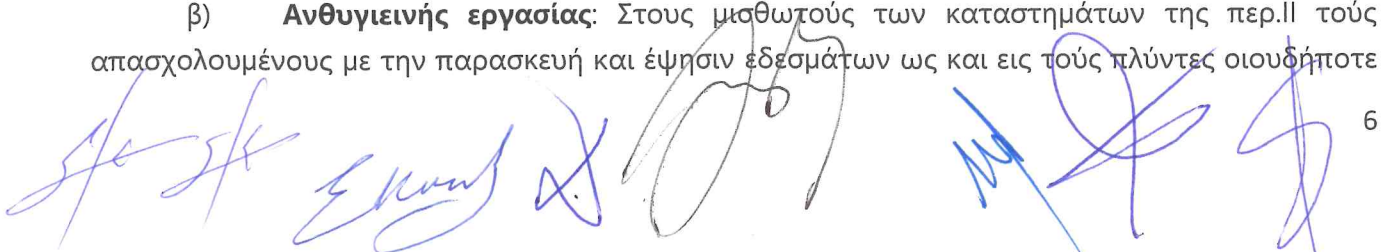 β) Ανθυγιεινής εργασίας: Στους μισθωτούς των καταστημάτων της περ.ΙΙ τούς
απασχολουμένους με την παρασκευή και έψησιν εδεσμάτων ως και εις τούς πλύντες οιουδήποτε
6